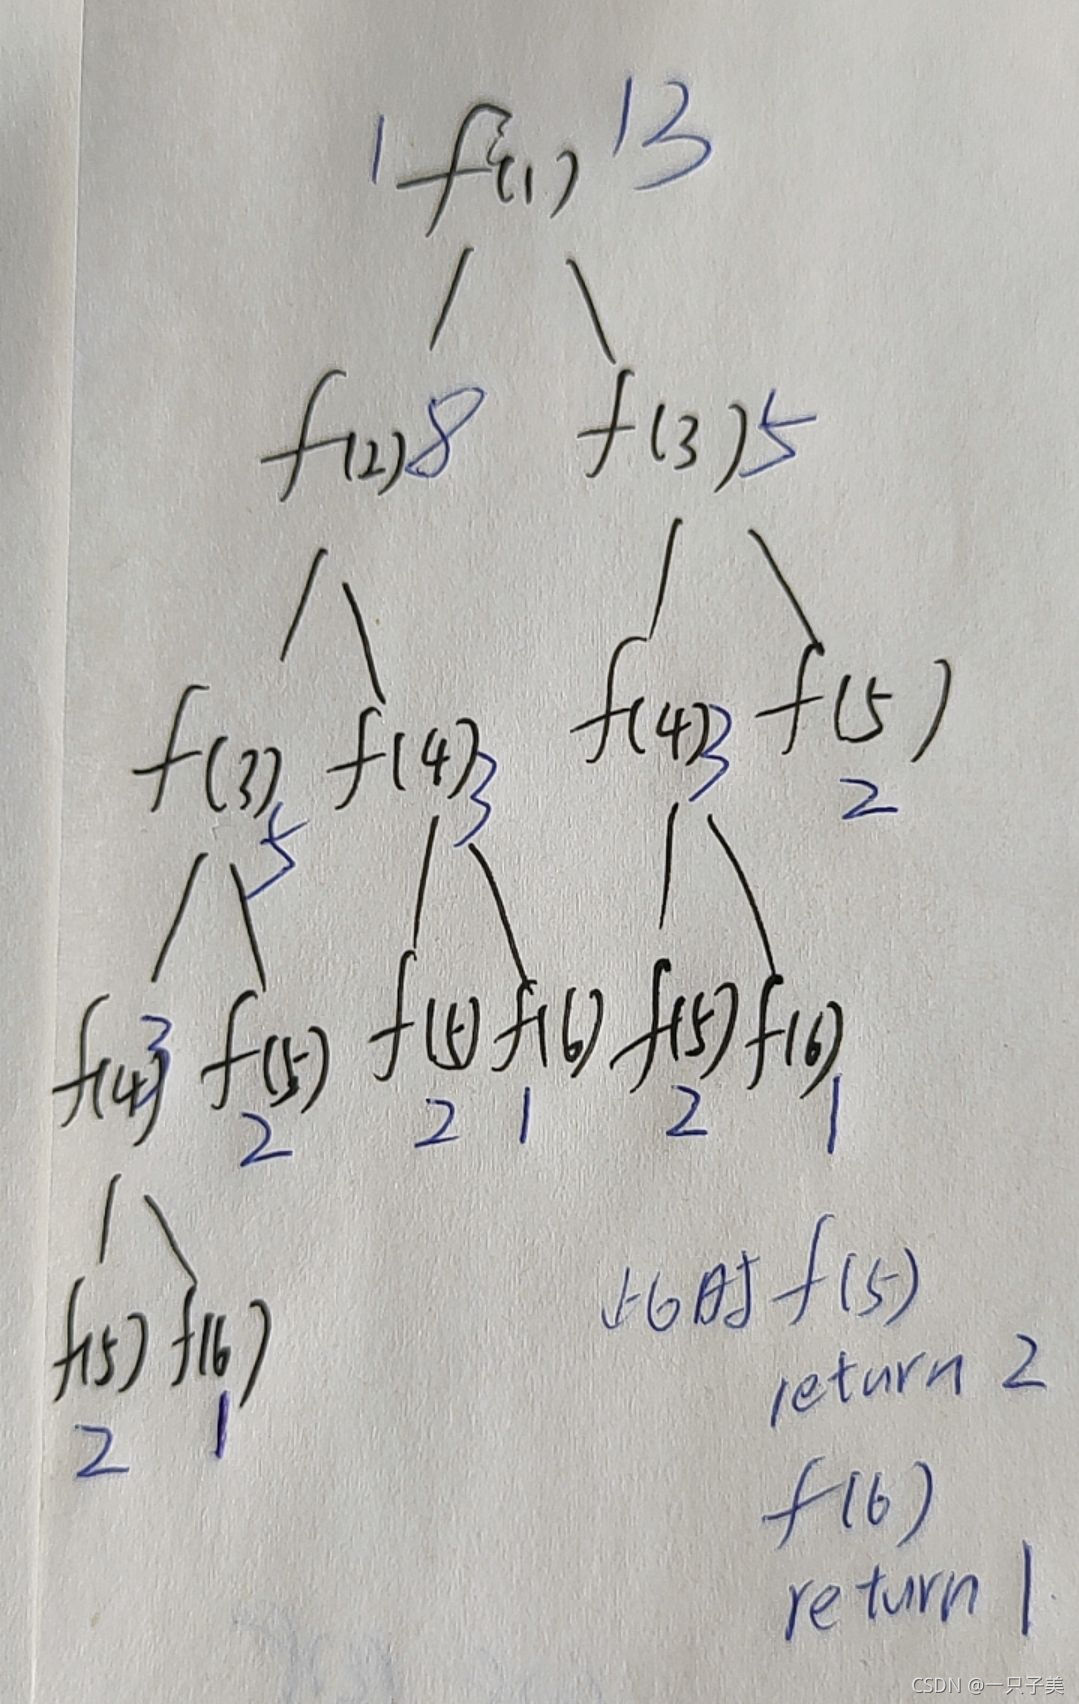 1 f(1) 13
f(2) 8 f(3) 5
f(3) 5 f(4) 3 f(4) 3 f(5) 2
f(4) 3 f(5) 2 f(5) 2 f(6) 1 f(5) 2 f(6) 1
f(5) 2 f(6) 1
此时 f(5)
return 2
f(6)
return 1
CSDN @一只子美